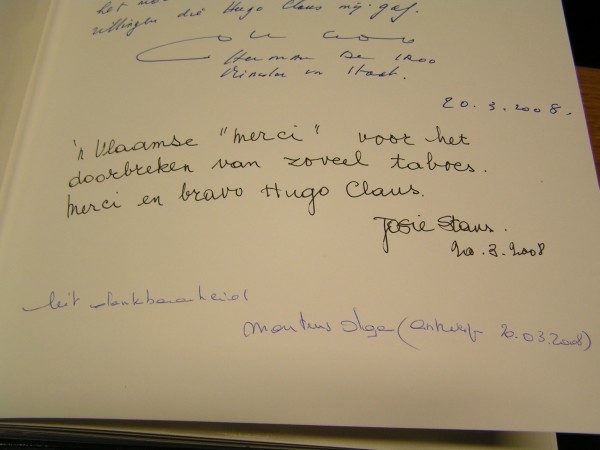 het
die Hugo Claus mij gaf.
Herman De Croo
Minister van Staat.
20.3.2008.
'n Vlaamse "merci" voor het
doorbreken van zoveel taboes.
Merci en bravo Hugo Claus.
Josie Staus.
20.3.2008
Uit dankbaarheid
Olga (Antwerp 20.03.2008)